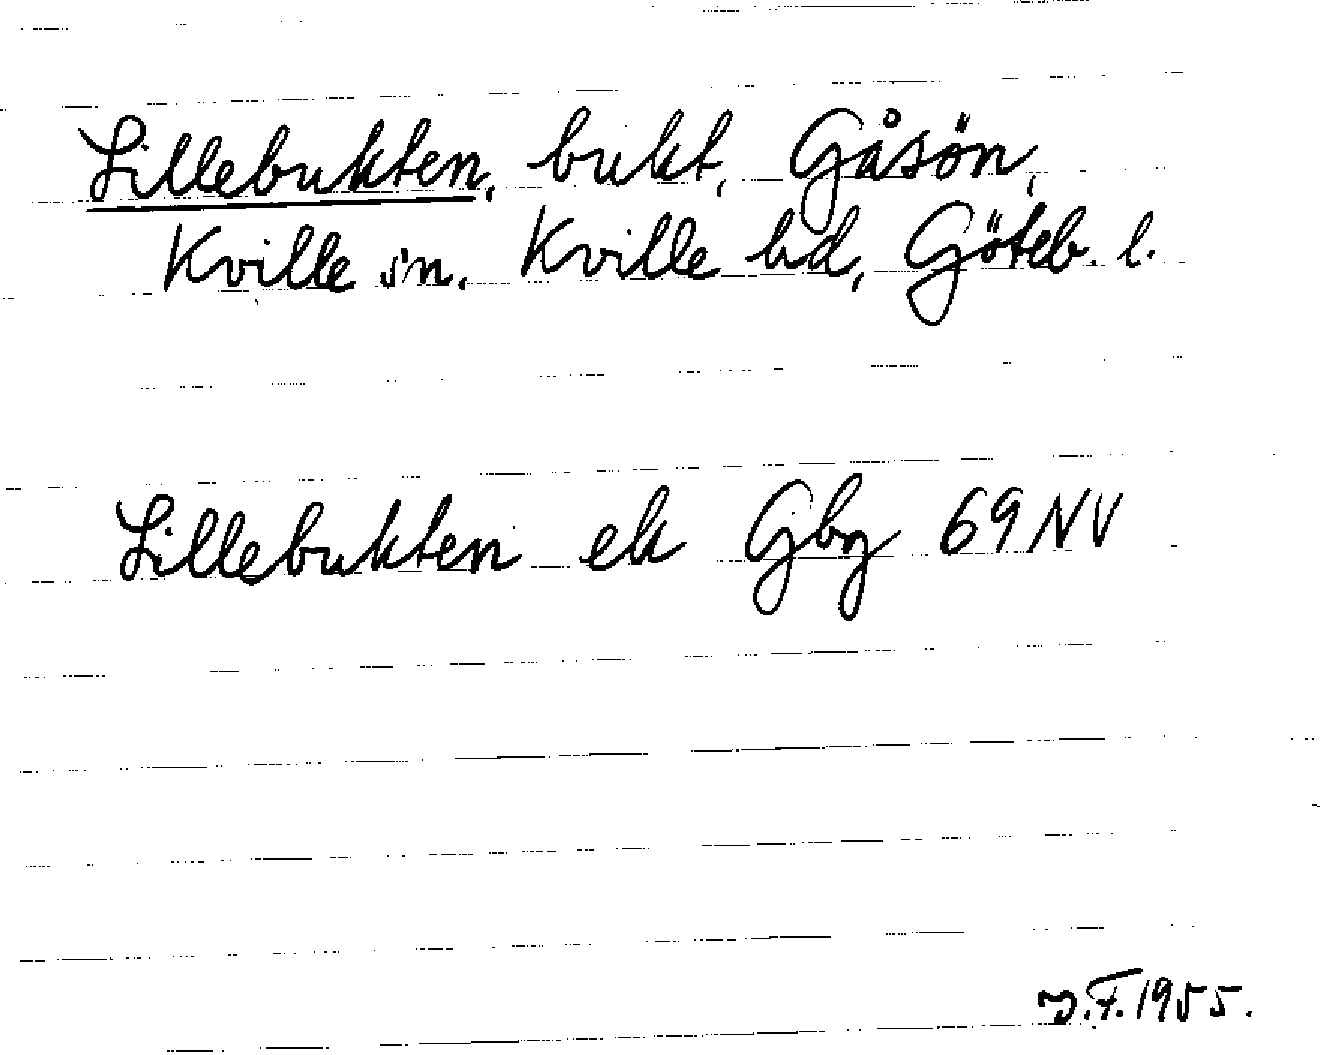 Lillebukten, bukt, Gåsön,
Kville sn. Kville hd, Göteb. l.
Lillebukten ek Gbg 69 NV
J.F. 1955.